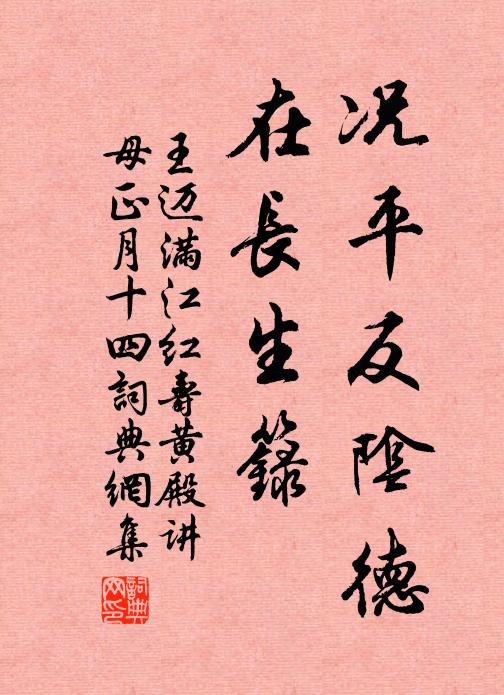 况平反陰德
在長生籙
王迈滿江红壽黄殿讲
母正月十四詞典網集
詞典网印